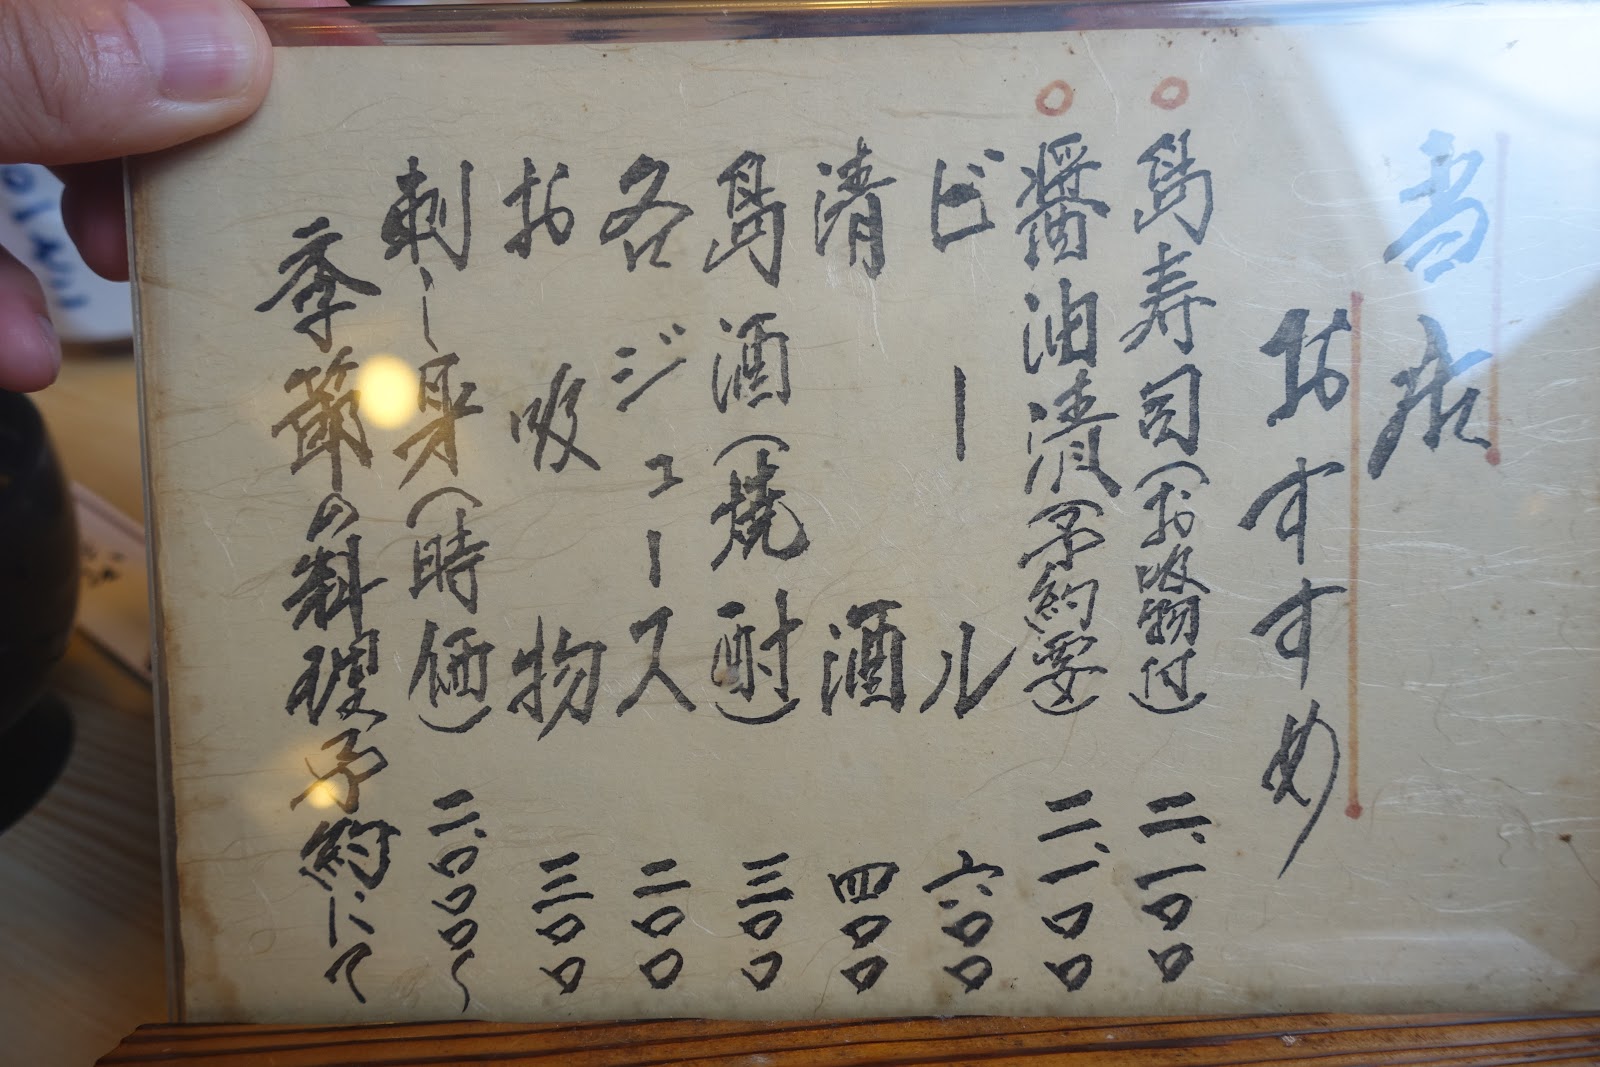 当店
おすすめ
○島寿司(お吸物付) 二、一〇〇
○醤油漬(予約要) 二、一〇〇
ビール 六〇〇
清酒 四〇〇
島酒(焼酎) 三〇〇
各ジュース 二〇〇
お吸物 三〇〇
刺し身(時価) 二、〇〇〇〜
季節の料理予約にて